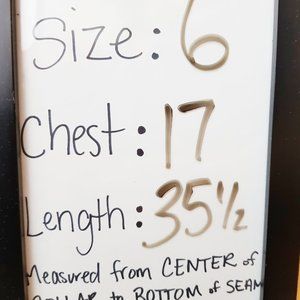 Size: 6
Chest: 17
Length: 35½
Measured from CENTER of
COLLAR to BOTTOM of SEAM